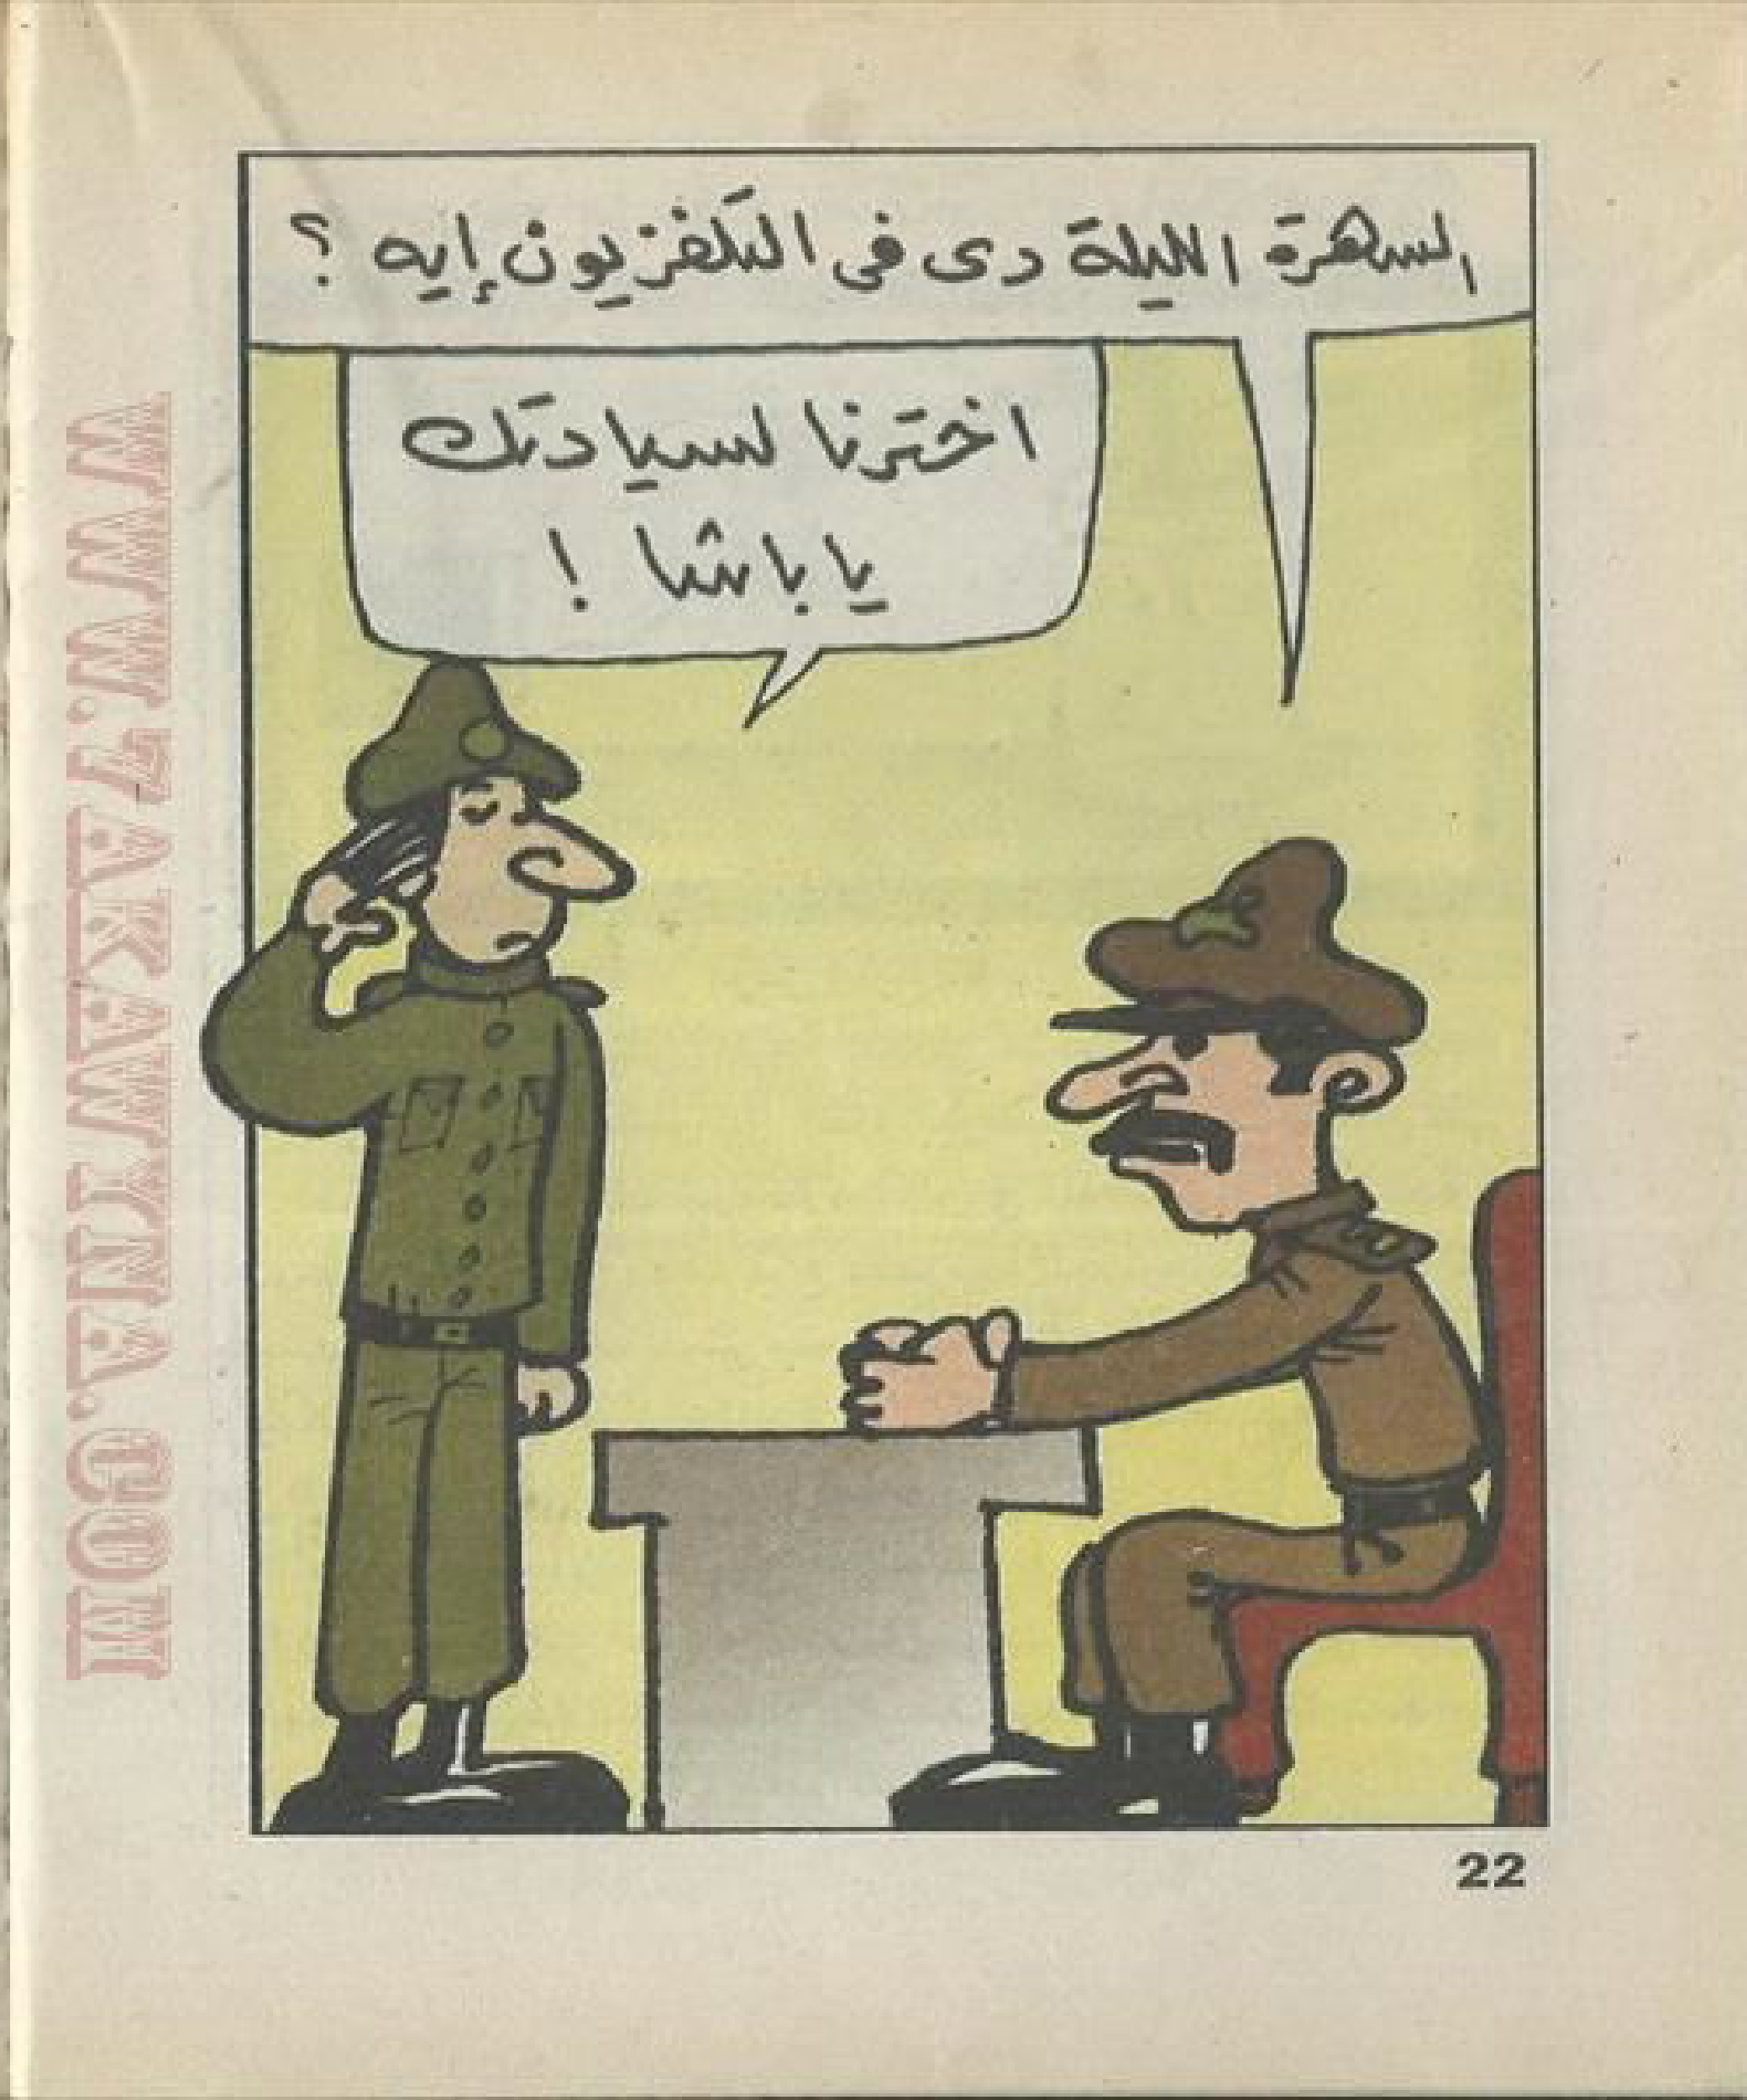 السهرة الليلة دى فى التلفزيون إيه ؟
اخترنا لسيادتك
يا باشا !
WWW.7AKAWYINA.COM
22